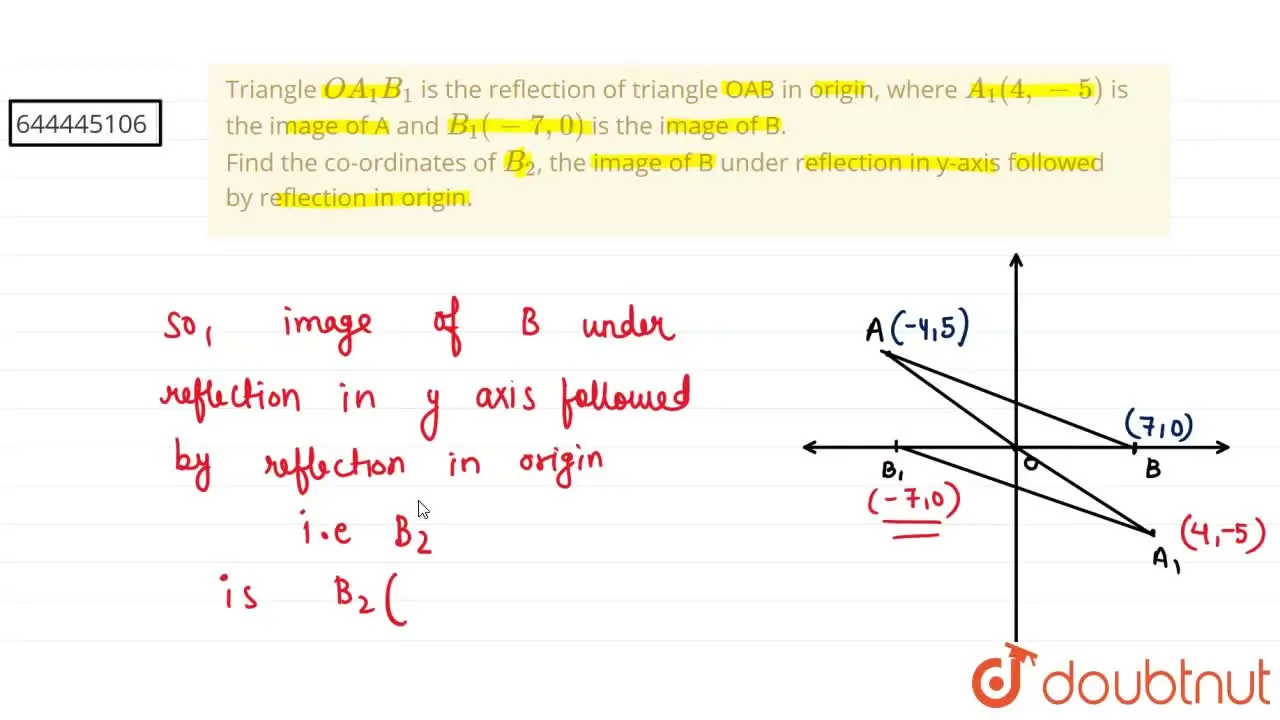 644445106
Triangle OA₁B₁ is the reflection of triangle OAB in origin, where A₁(4, −5) is
the image of A and B₁(−7, 0) is the image of B.
Find the co-ordinates of B₂, the image of B under reflection in y-axis followed
by reflection in origin.
So, image of B under
reflection in y axis followed
by reflection in origin
i.e B₂
is B₂(
A(-4,5)
(7,0)
B₁
O
B
(-7,0)
(4,-5)
A₁
doubtnut